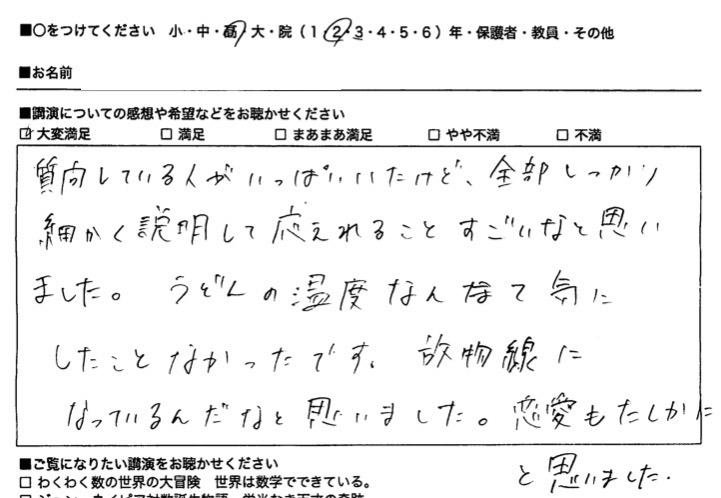 ■○をつけてください 小・中・高・大・院（1・2・3・4・5・6）年・保護者・教員・その他
■お名前
■講演についての感想や希望などをお聴かせください
☑ 大変満足 □ 満足 □ まあまあ満足 □ やや不満 □ 不満
質問している人がいっぱいいたけど、全部しっかり
細かく説明して応えれることすごいなと思い
ました。 うどんの温度なんて気に
したことなかったです。放物線に
なっているんだなと思いました。恋愛もたしかに
と思いました.
■ご覧になりたい講演をお聴かせください
□ わくわく数の世界の大冒険 世界は数学でできている。